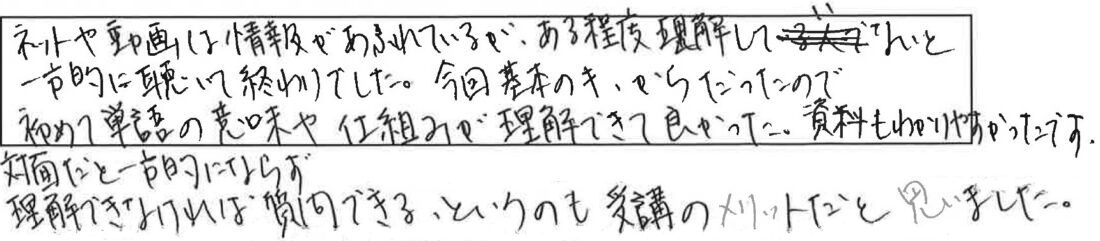 ネットや動画は情報があふれているが、ある程度理解していないと
一方的に聴いて終わりでした。今回基本のキ、からだったので
初めて単語の意味や仕組みが理解できて良かった。資料もわかりやすかったです。
対面だと一方的にならず
理解できなければ質問できる、というのも受講のメリットだと思いました。